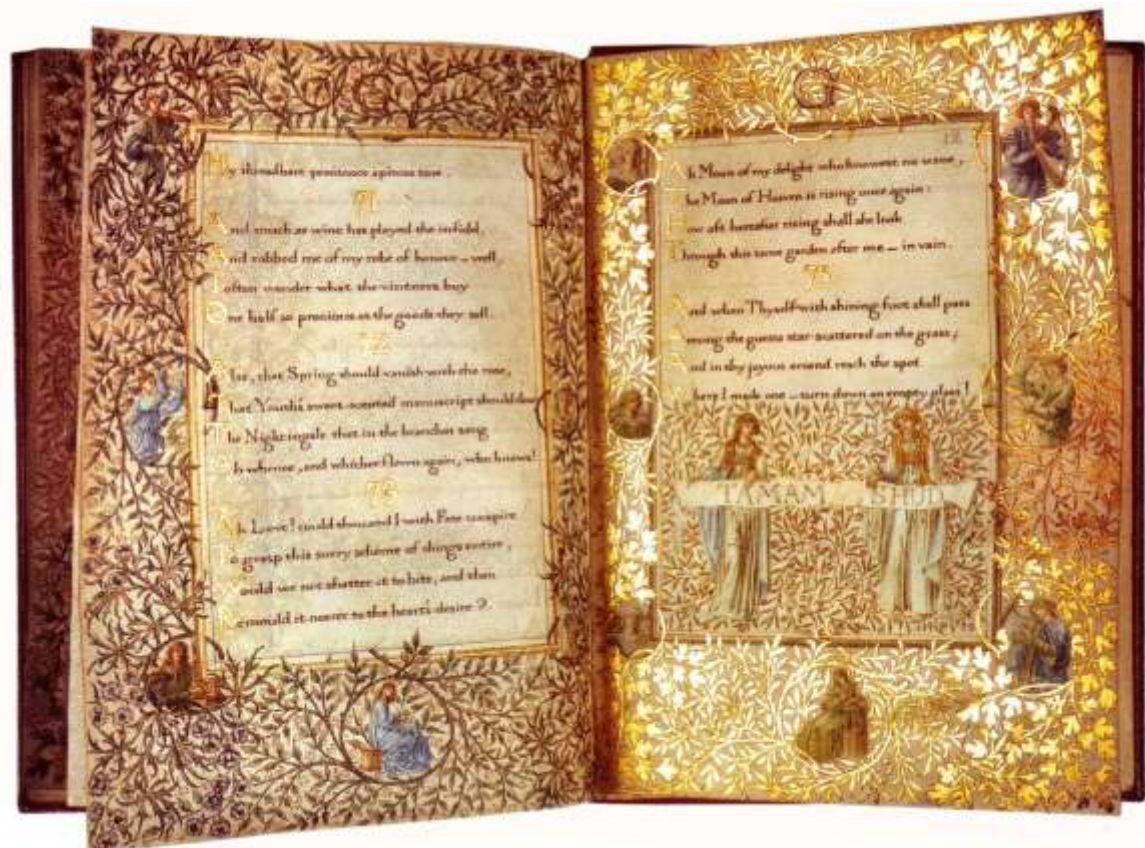 My threadbare penitence apieces tore.
71
And much as wine has played the infidel,
And robbed me of my robe of honour — well,
I often wonder what the vintners buy
One half so precious as the goods they sell.
72
Alas, that Spring should vanish with the rose,
That Youth's sweet-scented manuscript should close
The Nightingale that in the branches sang
Ah whence, and whither flown again, who knows!
73
Ah Love! could thou and I with Fate conspire
To grasp this sorry scheme of things entire,
Would we not shatter it to bits, and then
Remould it nearer to the heart's desire?
G
Ah Moon of my delight who knowest no wane,
The Moon of Heaven is rising once again:
How oft hereafter rising shall she look
Through this same garden after me — in vain.
75
And when Thyself with shining foot shall pass
Among the guests star-scattered on the grass,
And in thy joyous errand reach the spot
Where I made one — turn down an empty glass!
TAMAM SHUD